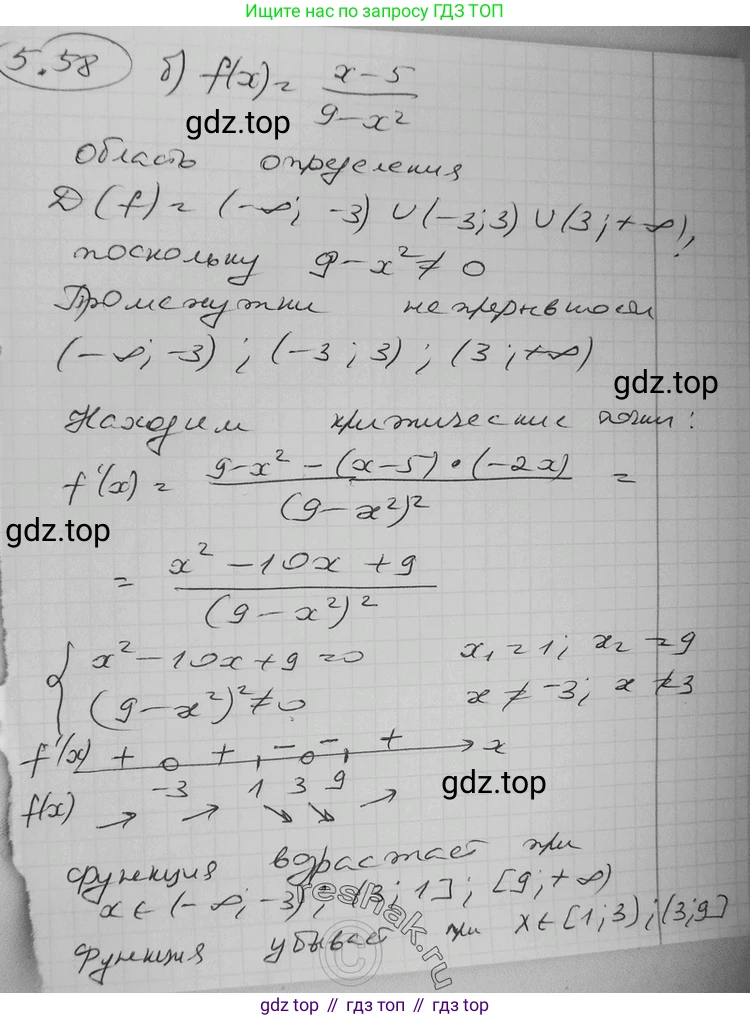 Ищите нас по запросу ГДЗ ТОП
5.58 б) f(x) = (x-5)/(9-x²)
gdz.top
область определения
D(f) = (-∞; -3) ∪ (-3; 3) ∪ (3; +∞),
поскольку 9-x² ≠ 0
Промежутки непрерывности
(-∞; -3) ; (-3 ; 3) ; (3 ; +∞)
gdz.top
Находим критические точки:
f'(x) = (9-x² - (x-5)·(-2x))/(9-x²)² =
gdz.top
= (x² - 10x + 9)/(9-x²)²
{ x² - 10x + 9 = 0 x₁ = 1; x₂ = 9
(9-x²)² ≠ 0 x ≠ -3; x ≠ 3
f'(x) + + - - + x
-3 1 3 9
gdz.top
f(x) → → ↘ ↘ →
функция возрастает при
x ∈ (-∞; -3); (3; 1]; [9; +∞)
reshak.ru
функция убывает при x ∈ [1; 3); (3; 9]
gdz.top // гдз топ // gdz.top